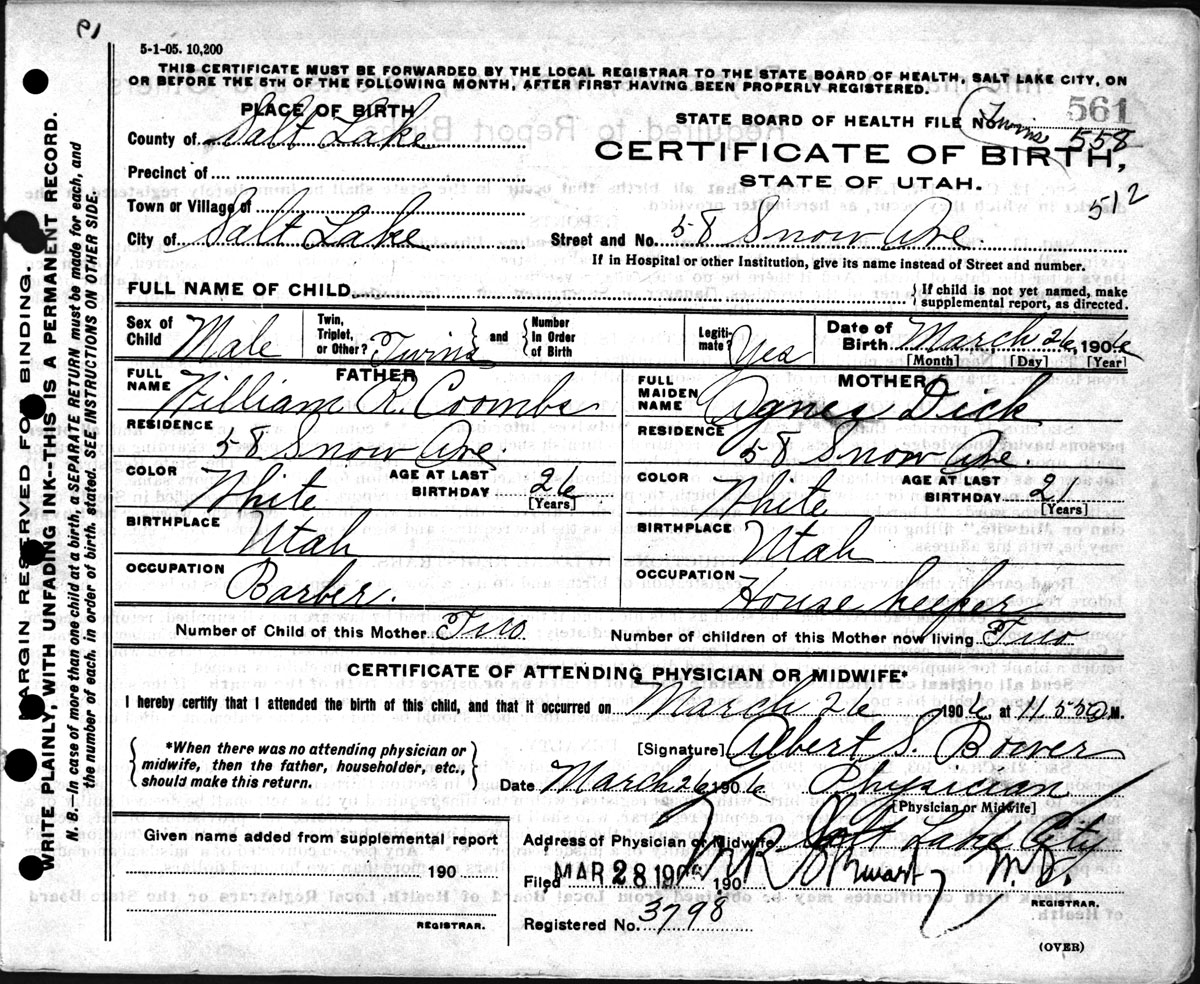 19
5-1-05. 10,200
THIS CERTIFICATE MUST BE FORWARDED BY THE LOCAL REGISTRAR TO THE STATE BOARD OF HEALTH, SALT LAKE CITY, ON
OR BEFORE THE 5TH OF THE FOLLOWING MONTH, AFTER FIRST HAVING BEEN PROPERLY REGISTERED.
PLACE OF BIRTH
561
County of Salt Lake
STATE BOARD OF HEALTH FILE NO. (Twins 558
CERTIFICATE OF BIRTH,
Precinct of
STATE OF UTAH.
Town or Village of
512
City of Salt Lake
Street and No. 58 Snow Ave
If in Hospital or other Institution, give its name instead of Street and number.
FULL NAME OF CHILD
{If child is not yet named, make
supplemental report, as directed.
Sex of Child Male
Twin, Triplet, or Other? Twins } and { Number in Order of Birth
Legiti-mate? Yes
Date of Birth March 26, 1906
[Month] [Day] [Year]
FATHER
FULL NAME William R. Coombs
RESIDENCE
58 Snow Ave.
COLOR White
AGE AT LAST BIRTHDAY 26
[Years]
BIRTHPLACE
Utah
OCCUPATION
Barber.
MOTHER
FULL MAIDEN NAME Agnes Dick
RESIDENCE
58 Snow Ave
COLOR White
AGE AT LAST BIRTHDAY 21
[Years]
BIRTHPLACE
Utah
OCCUPATION
House keeper
Number of Child of this Mother Two
Number of children of this Mother now living Two
CERTIFICATE OF ATTENDING PHYSICIAN OR MIDWIFE*
I hereby certify that I attended the birth of this child, and that it occurred on March 26 1906, at 11.55 M.
{ *When there was no attending physician or
midwife, then the father, householder, etc.,
should make this return. }
[Signature] Albert S. Bower
Date March 26 1906 Physician
[Physician or Midwife]
Address of Physician or Midwife Salt Lake City
Given name added from supplemental report
190
REGISTRAR.
Filed MAR 28 1906 190 M.D.
REGISTRAR.
Registered No. 3798
(OVER)
MARGIN RESERVED FOR BINDING.
WRITE PLAINLY, WITH UNFADING INK--THIS IS A PERMANENT RECORD.
N. B.—In case of more than one child at a birth, a SEPARATE RETURN must be made for each, and
the number of each, in order of birth, stated. SEE INSTRUCTIONS ON OTHER SIDE.